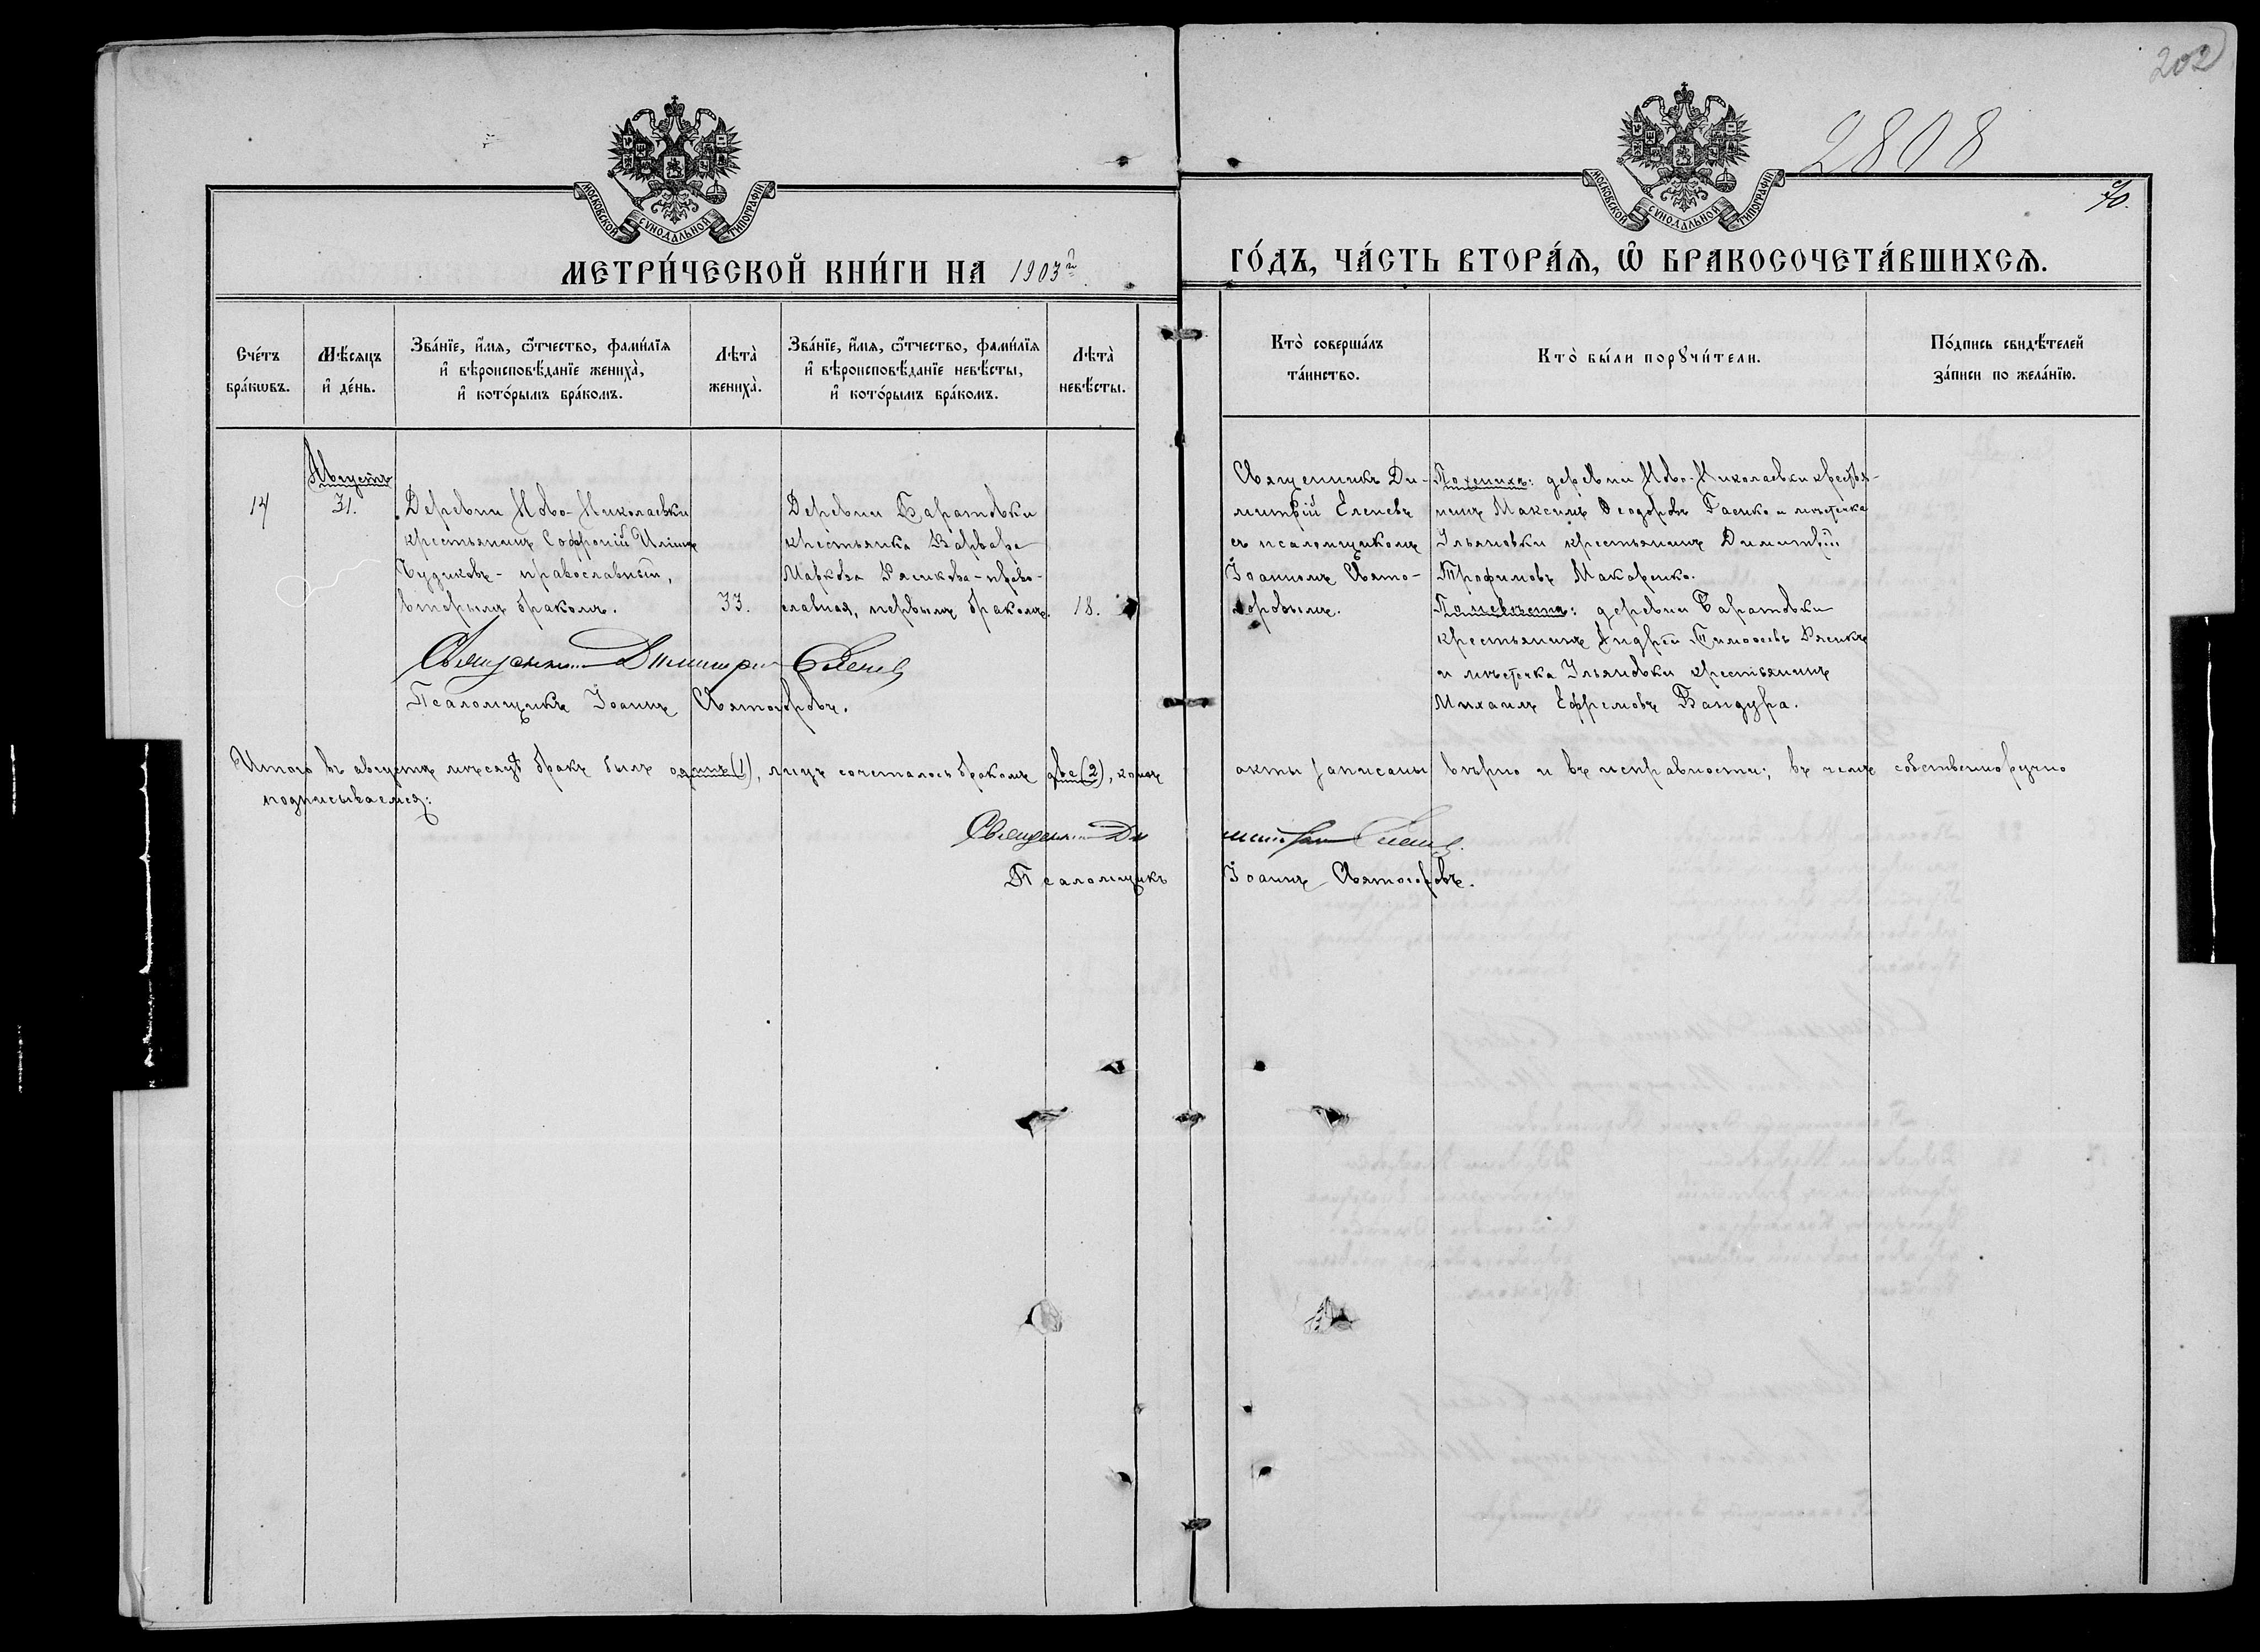 202
2808
МОСКОВСКОЙ СѴНОДАЛЬНОЙ ТИПОГРАФІИ
МОСКОВСКОЙ СѴНОДАЛЬНОЙ ТИПОГРАФІИ
МЕТРИ́ЧЕСКОЙ КНИ́ГИ НА 1903й
ГО́ДЪ, ЧА́СТЬ ВТОРА́Ѧ, Ѽ БРАКОСОЧЕТА́ВШИХСѦ.
Сче́тъ
бра́кѡвъ.
Мѣ́сяцъ
и҆ де́нь.
Зва́нїе, и҆́мя, ѻ҆́тчество, фами́лїя
и҆ вѣроисповѣ́данїе жениха̀,
и҆ кото́рымъ бра́комъ.
Лѣта̀
жениха̀.
Зва́нїе, и҆́мя, ѻ҆́тчество, фами́лїя
и҆ вѣроисповѣ́данїе невѣ́сты,
и҆ кото́рымъ бра́комъ.
Лѣта̀
невѣ́сты.
Кто̀ соверша́лъ
та́инство.
Кто̀ бы́ли порꙋчи́тели.
По́дпись свидѣ́телей
за́писи по жела́нїю.
14
Августъ
31.
Деревни Ново-Николаевки
крестьянинъ Софроній Иліинъ
Чудиковъ - православный,
вторымъ бракомъ.
33.
Деревни Баратовки
крестьянка Варвара
Маркова Рясикова - право-
славная, первымъ бракомъ.
18.
Священникъ Ди-
митрій Еленевъ
съ псаломщикомъ
Іоанномъ Свято-
горовымъ.
По женихѣ: деревни Ново-Николаевки крестья-
нинъ Максимъ Ѳеодоровъ Гасико и мѣстечка
Ульяновки крестьянинъ Димитрій
Трофимовъ Макаренко.
По невѣстѣ: деревни Баратовки
крестьянинъ Андрей Тимоѳеевъ Рясикъ
и мѣстечка Ульяновки крестьянинъ
Михаилъ Ефремовъ Бандура.
Священникъ Димитрій Еленевъ
Псаломщикъ Іоаннъ Святогоровъ.
Итого въ августѣ мѣсяцѣ бракъ былъ одинъ (1), лицъ сочеталось бракомъ две (2), коихъ акты записаны вѣрно и въ исправности; въ чемъ собственноручно
подписываемся:
Священникъ Димитрій Еленевъ
Псаломщикъ Іоаннъ Святогоровъ.